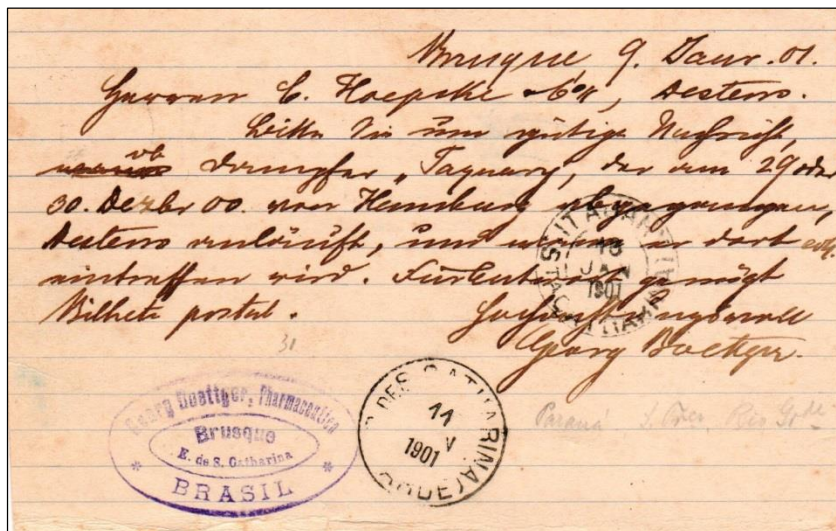 Brusque, 9. Januar. 01.
Herren C. Hoepcke & Co, Desterro.
Bitte Sie um gütige Nachricht,
ob Dampfer „Taquary, der am 29 oder
30. Dezbr 00. von Hamburg abgegangen,
Desterro anläuft, und wann er dort
eintreffen wird. Antwort genügt
Bilhete postal.
Hochachtungsvoll
Georg Boettger.
31
Georg Boettger, Pharmaceutico
Brusque
E. de S. Catharina
BRASIL
11
1901
S. CATHARINA
ITAJAHY
JAN
1901
Paraná